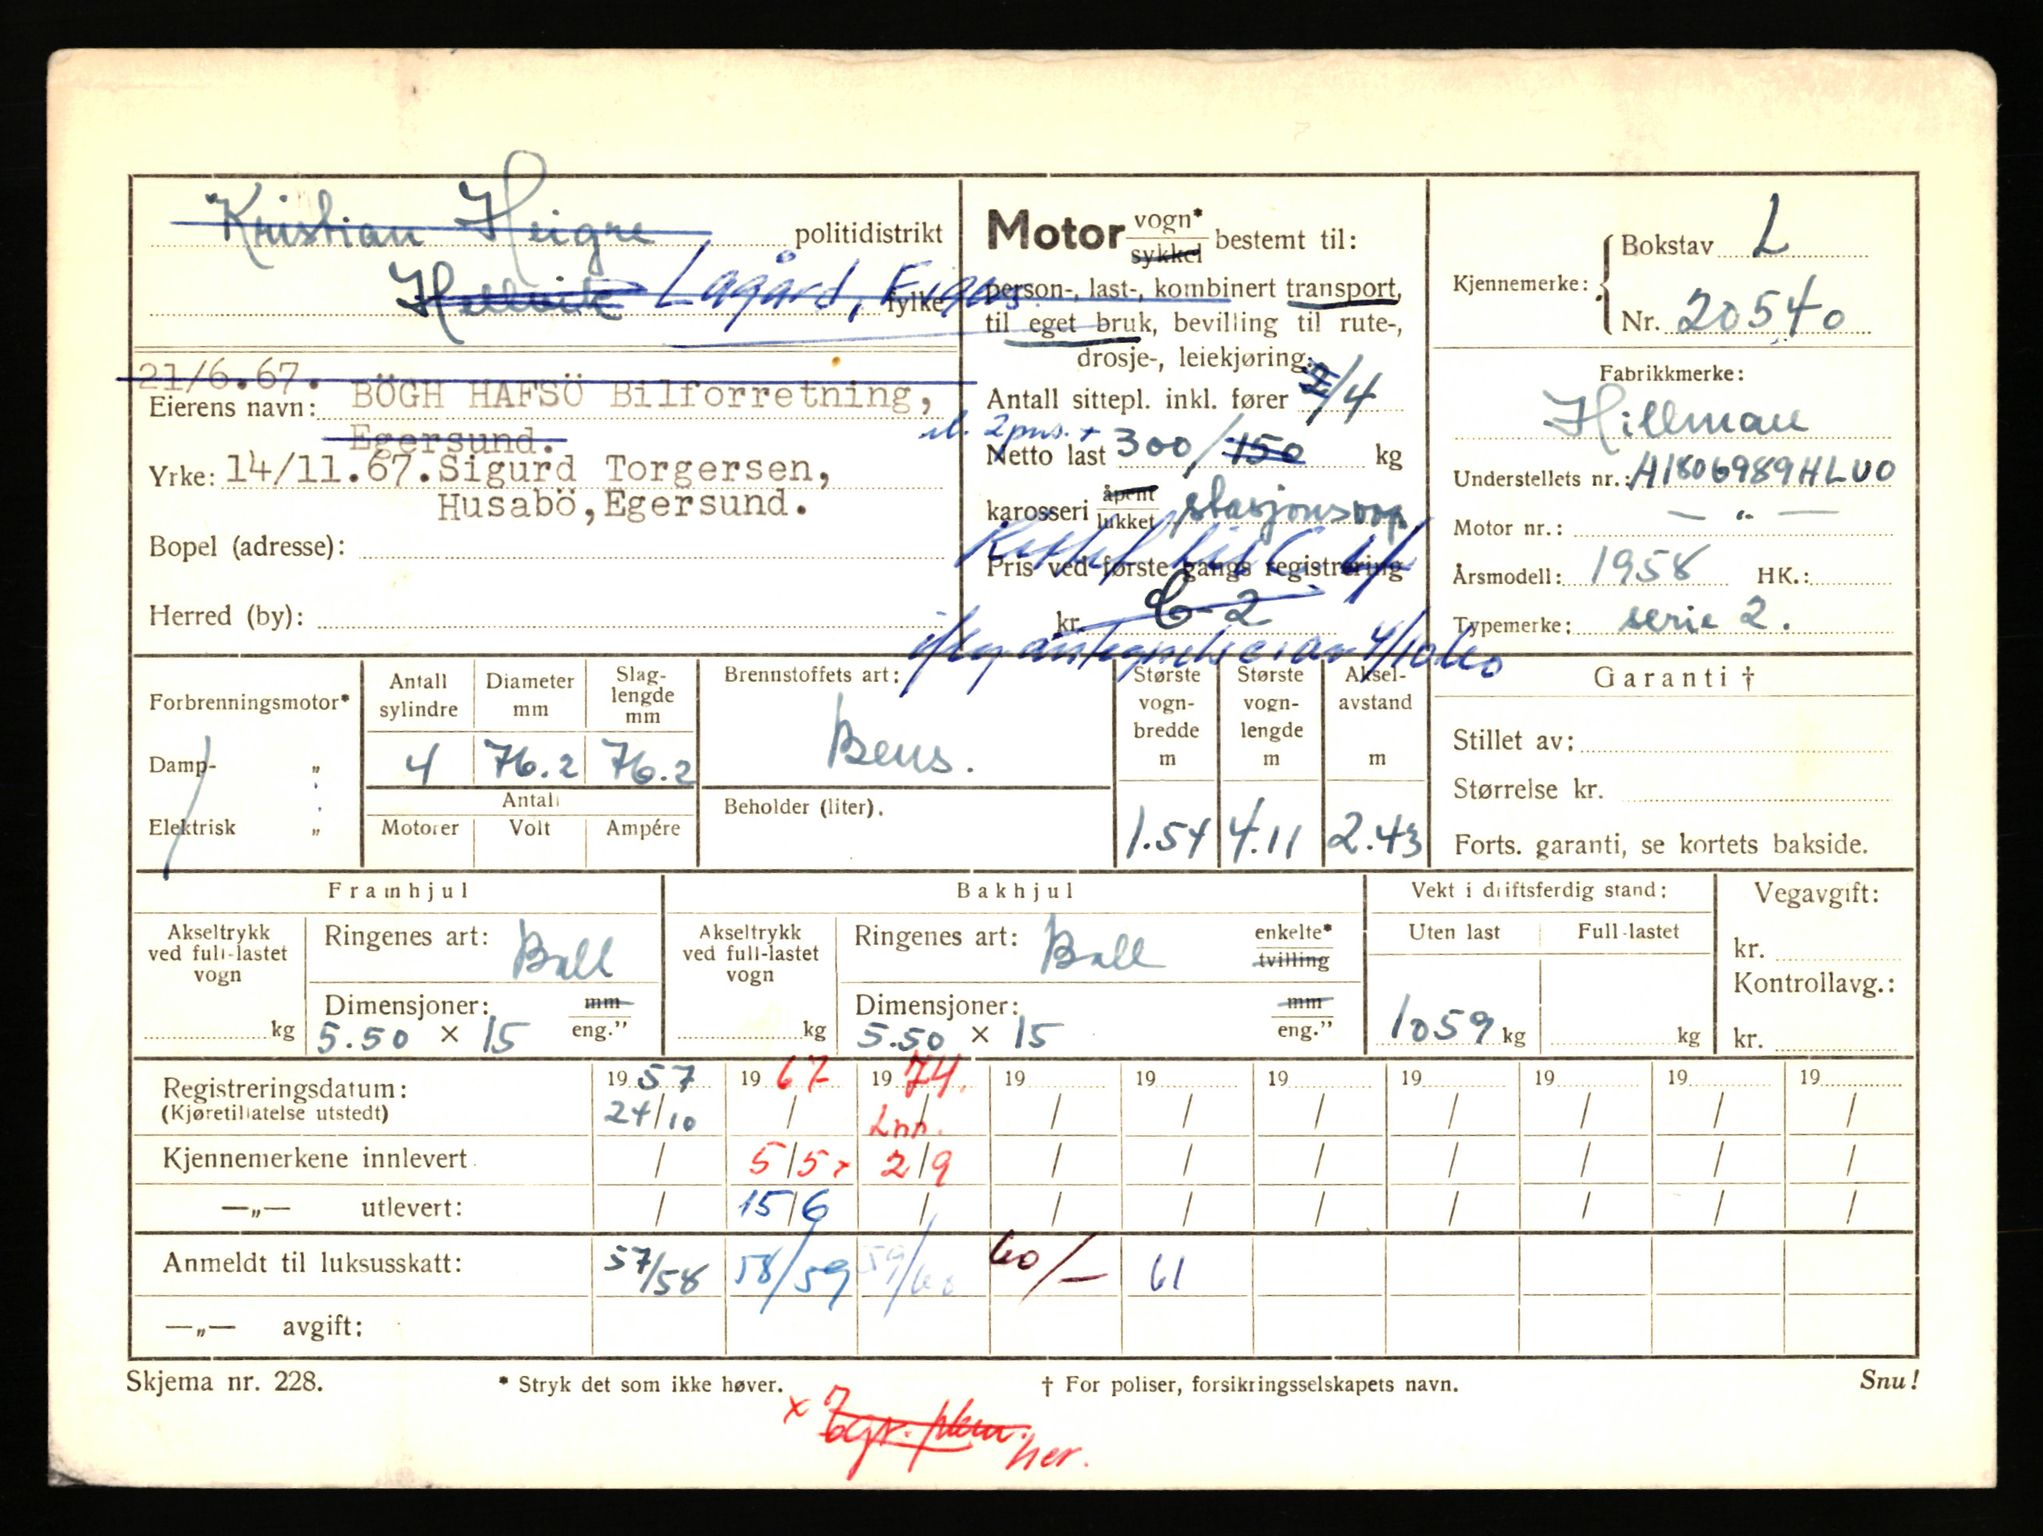 Kristian Heigre politidistrikt
Hellvik Lagård, fylke
21/6.67. BÖGH HAFSÖ Bilforretning,
Eierens navn:
Egersund.
Yrke: 14/11.67. Sigurd Torgersen,
Husabö, Egersund.
Bopel (adresse):
Herred (by):
Motor vogn* sykkel bestemt til:
person-, last-, kombinert transport,
til eget bruk, bevilling til rute-,
drosje-, leiekjøring:
Antall sittepl. inkl. fører 2/4
Netto last 300/150 kg
karosseri åpent lukket stasjonsvogn
Pris ved første gangs registrering
kr. C-2
4/10 60
Kjennemerke: Bokstav L
Nr. 20540
Fabrikkmerke:
Hillman
Understellets nr.: A1806989HLUO
Motor nr.: — " —
Årsmodell: 1958 HK.:
Typemerke: serie 2.
Forbrenningsmotor*
Damp- "
Elektrisk "
Antall sylindre Diameter mm Slag-lengde mm
4 76.2 76.2
Antall
Motorer Volt Ampére
Brennstoffets art:
Bens.
Beholder (liter).
Største vogn-bredde m Største vogn-lengde m Aksel-avstand m
1.54 4.11 2.43
Garanti †
Stillet av:
Størrelse kr.
Forts. garanti, se kortets bakside.
Framhjul
Akseltrykk ved full-lastet vogn
kg
Ringenes art: Ball
Dimensjoner: mm
5.50 × 15 eng."
Bakhjul
Akseltrykk ved full-lastet vogn
kg
Ringenes art: Ball enkelte* tvilling
Dimensjoner: mm
5.50 × 15 eng."
Vekt i driftsferdig stand:
Uten last Full-lastet
1059 kg kg
Vegavgift:
kr.
Kontrollavg.:
kr.
Registreringsdatum: 19 57 19 67 19 74. 19 19 19 19 19 19 19
(Kjøretillatelse utstedt) 24/10 / Lnn. / / / / / / /
Kjennemerkene innlevert / 5/5 x 2/9 / / / / / / /
—„— utlevert: / 15/6 / / / / / / / /
Anmeldt til luksusskatt: 57/58 58/59 59/60 60/— 61
—„— avgift:
Skjema nr. 228. * Stryk det som ikke høver. † For poliser, forsikringsselskapets navn. Snu!
x her.